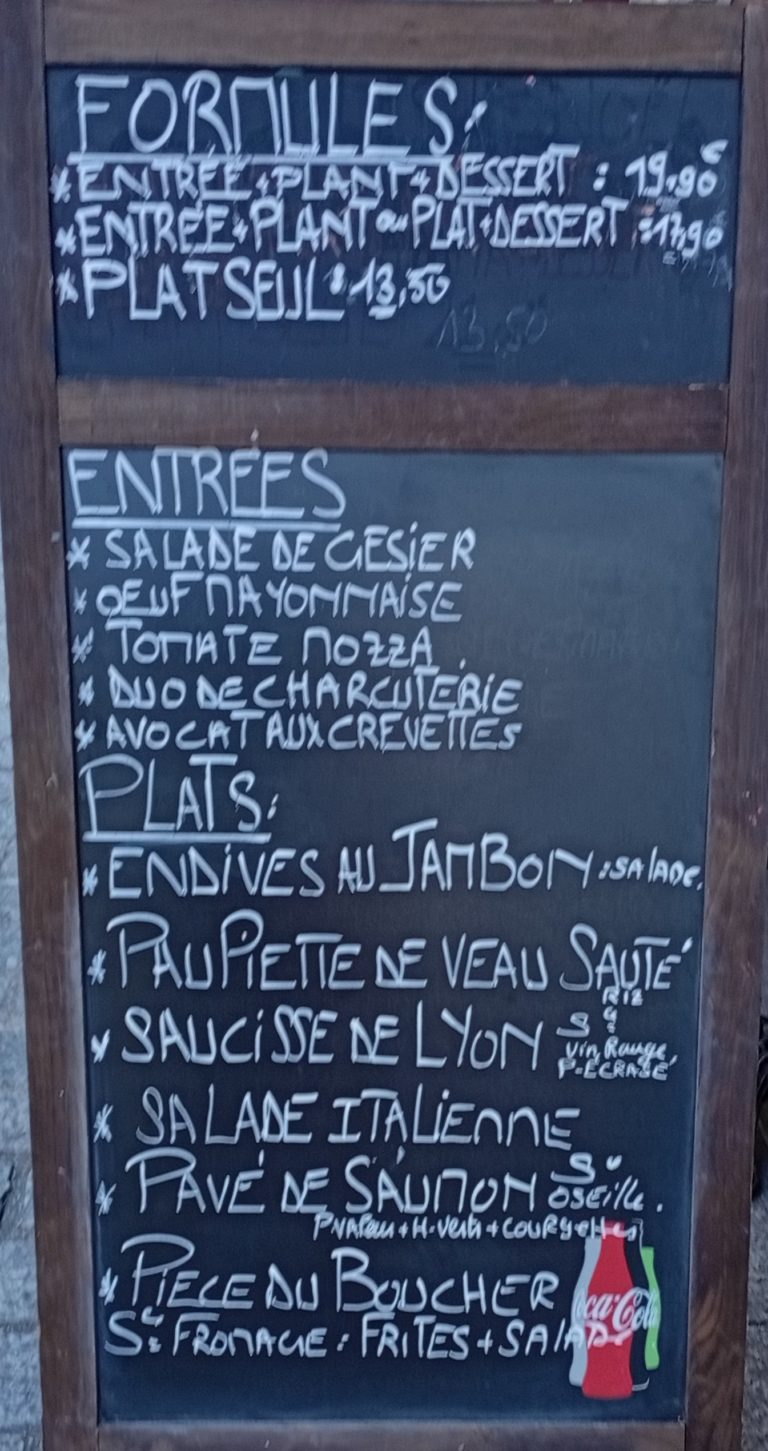 FORMULES:
* ENTRÉE + PLANT + DESSERT : 19,90€
* ENTRÉE + PLANT ou PLAT + DESSERT : 17,90
* PLAT SEUL : 13,50
13,50
ENTRÉES
* SALADE DE GESIER
* OEUF MAYONNAISE
* TOMATE MOZZA
* DUO DE CHARCUTERIE
* AVOCAT AUX CREVETTES
PLATS:
* ENDIVES AU JAMBON : SALADE.
* PAUPIETTE DE VEAU SAUTÉ
RIZ
* SAUCISSE DE LYON Sc:
Vin Rouge,
P-ECRASÉ
* SALADE ITALIENNE
* PAVÉ DE SAUMON Sc OSEILLE.
+ H-Verts +
* PIECE DU BOUCHER
Sc: FROMAGE : FRITES + SALADE
Coca-Cola